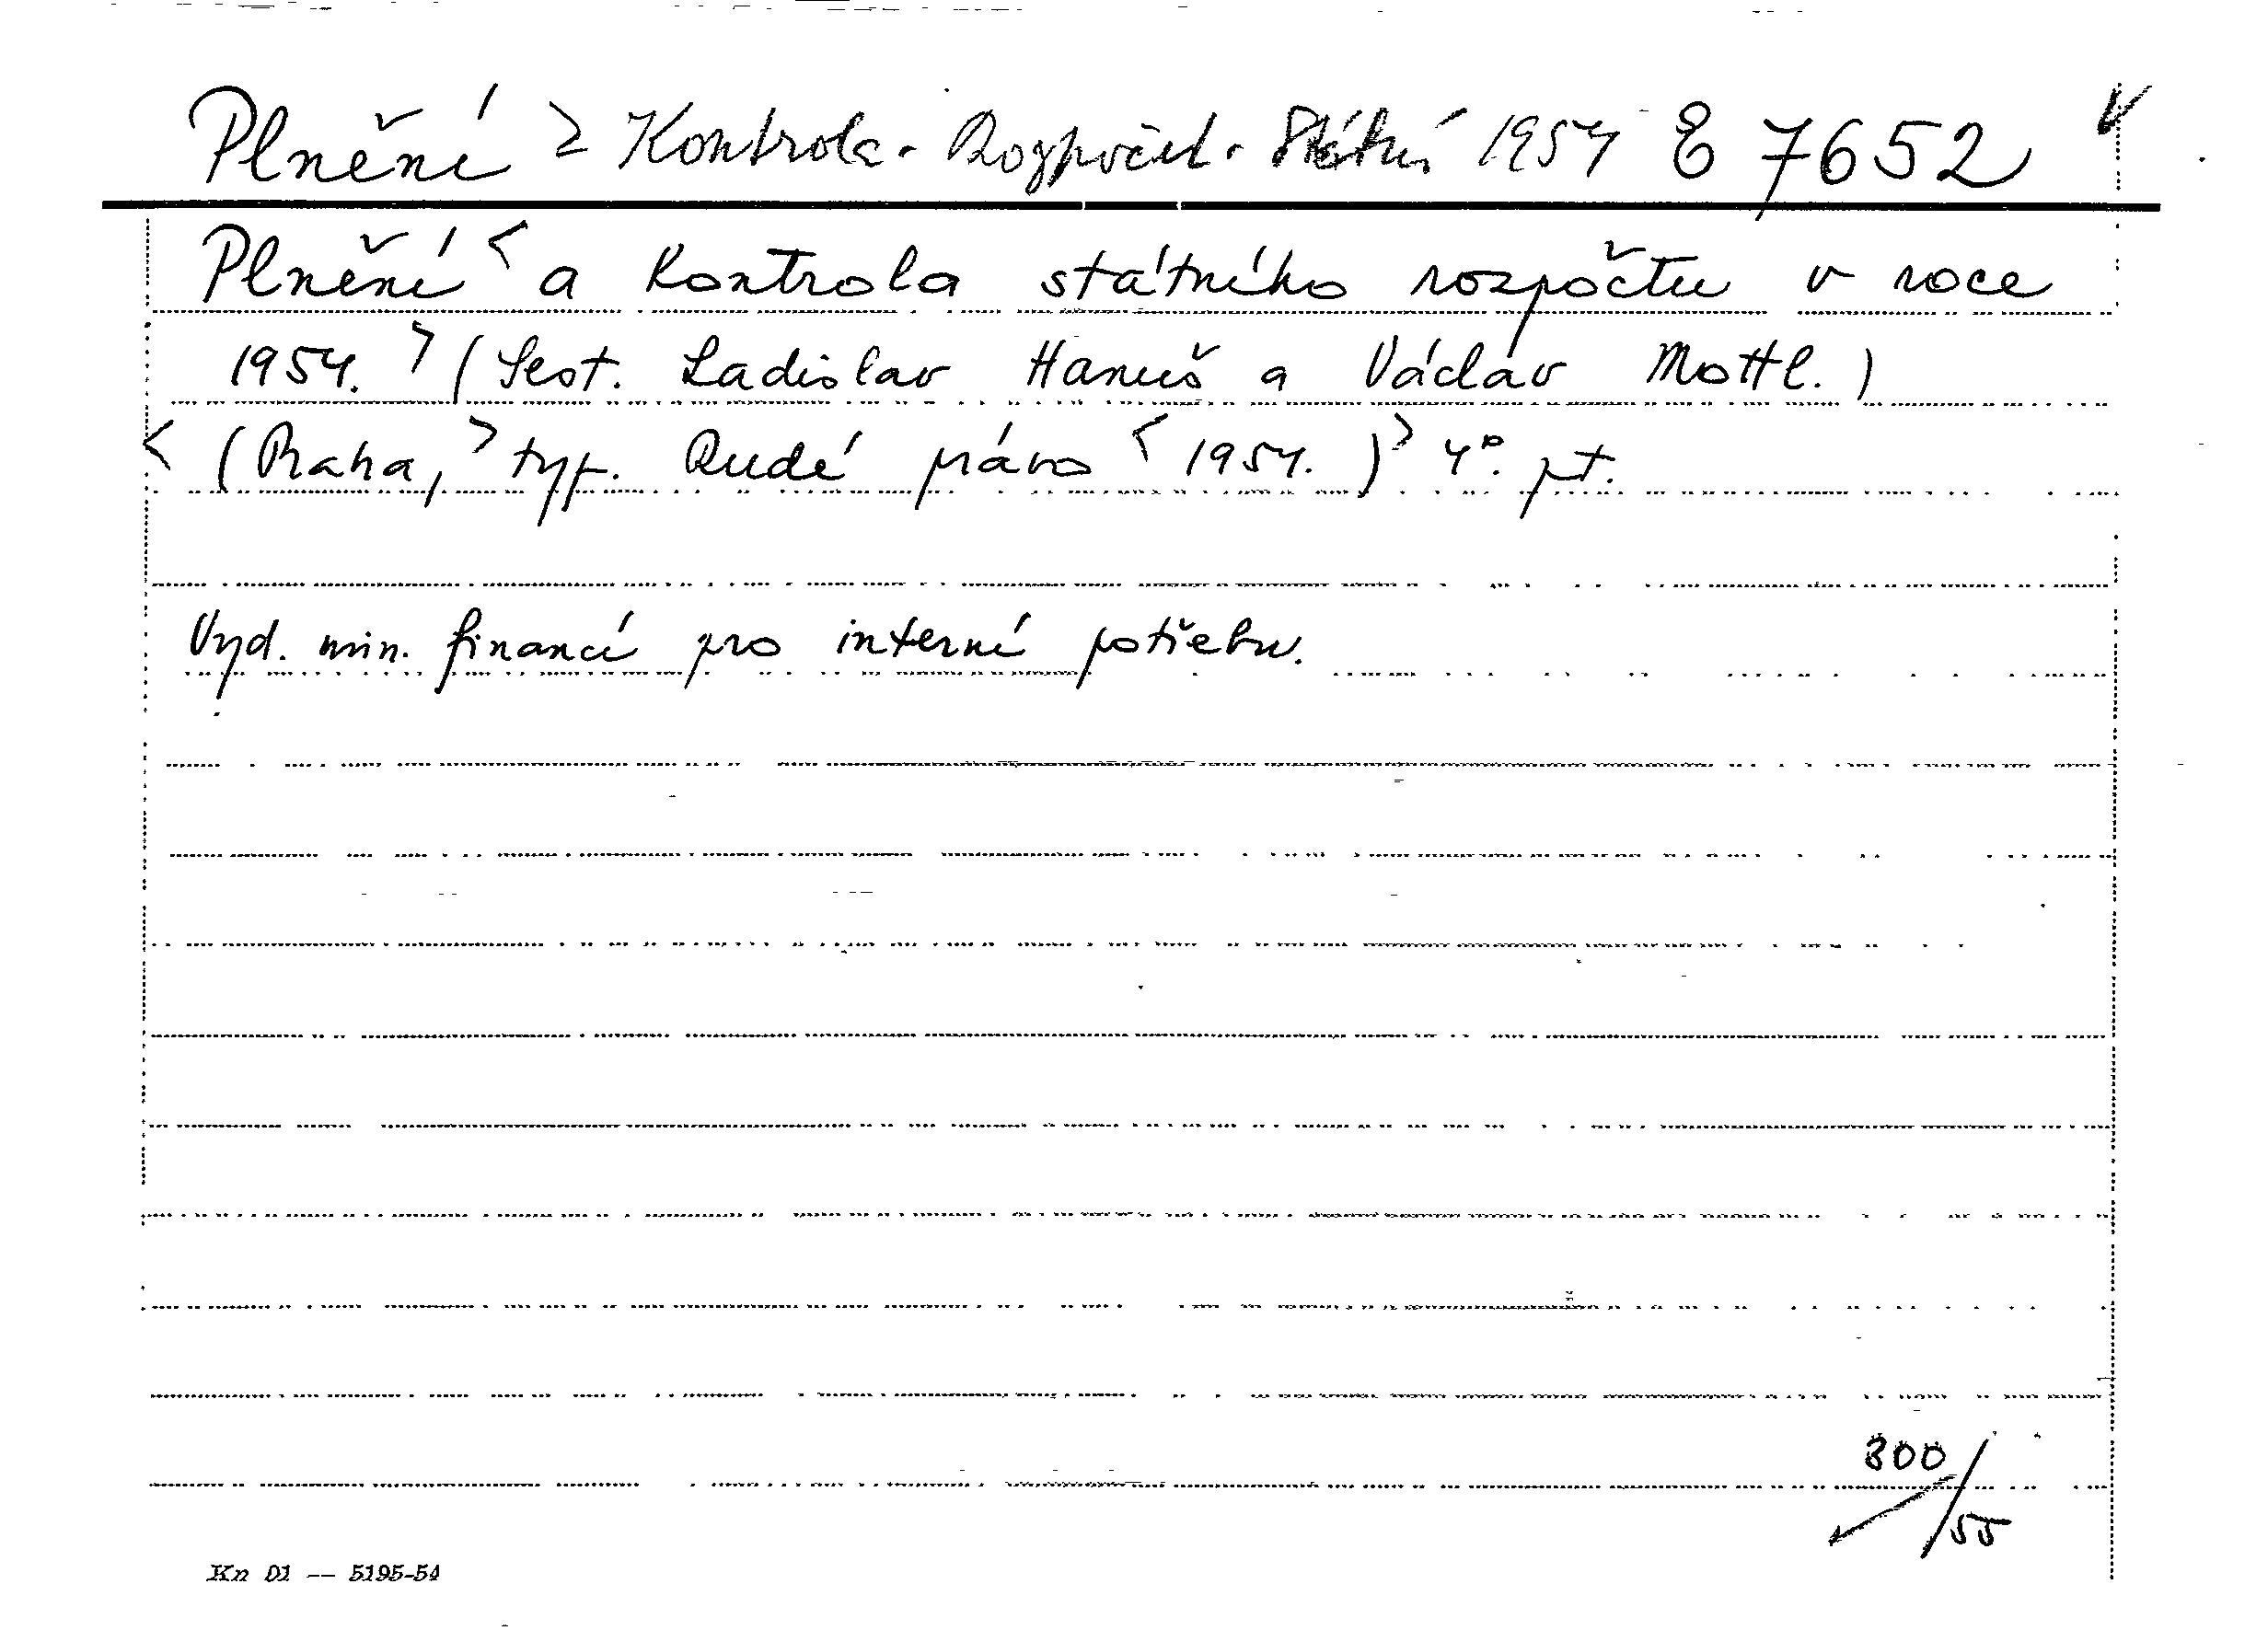 Plnění > Kontrola - Rozpočet - Státní 1954 E 7652
Plnění < a kontrola státního rozpočtu v roce
1954. > (Sest. Ladislav Hanuš a Václav Mottl.)
< (Praha, > typ. Rudé právo < 1954. ) > 4°. pt.
Vyd. min. financí pro interní potřebu.
800/55
Kn 01 — 5195-54